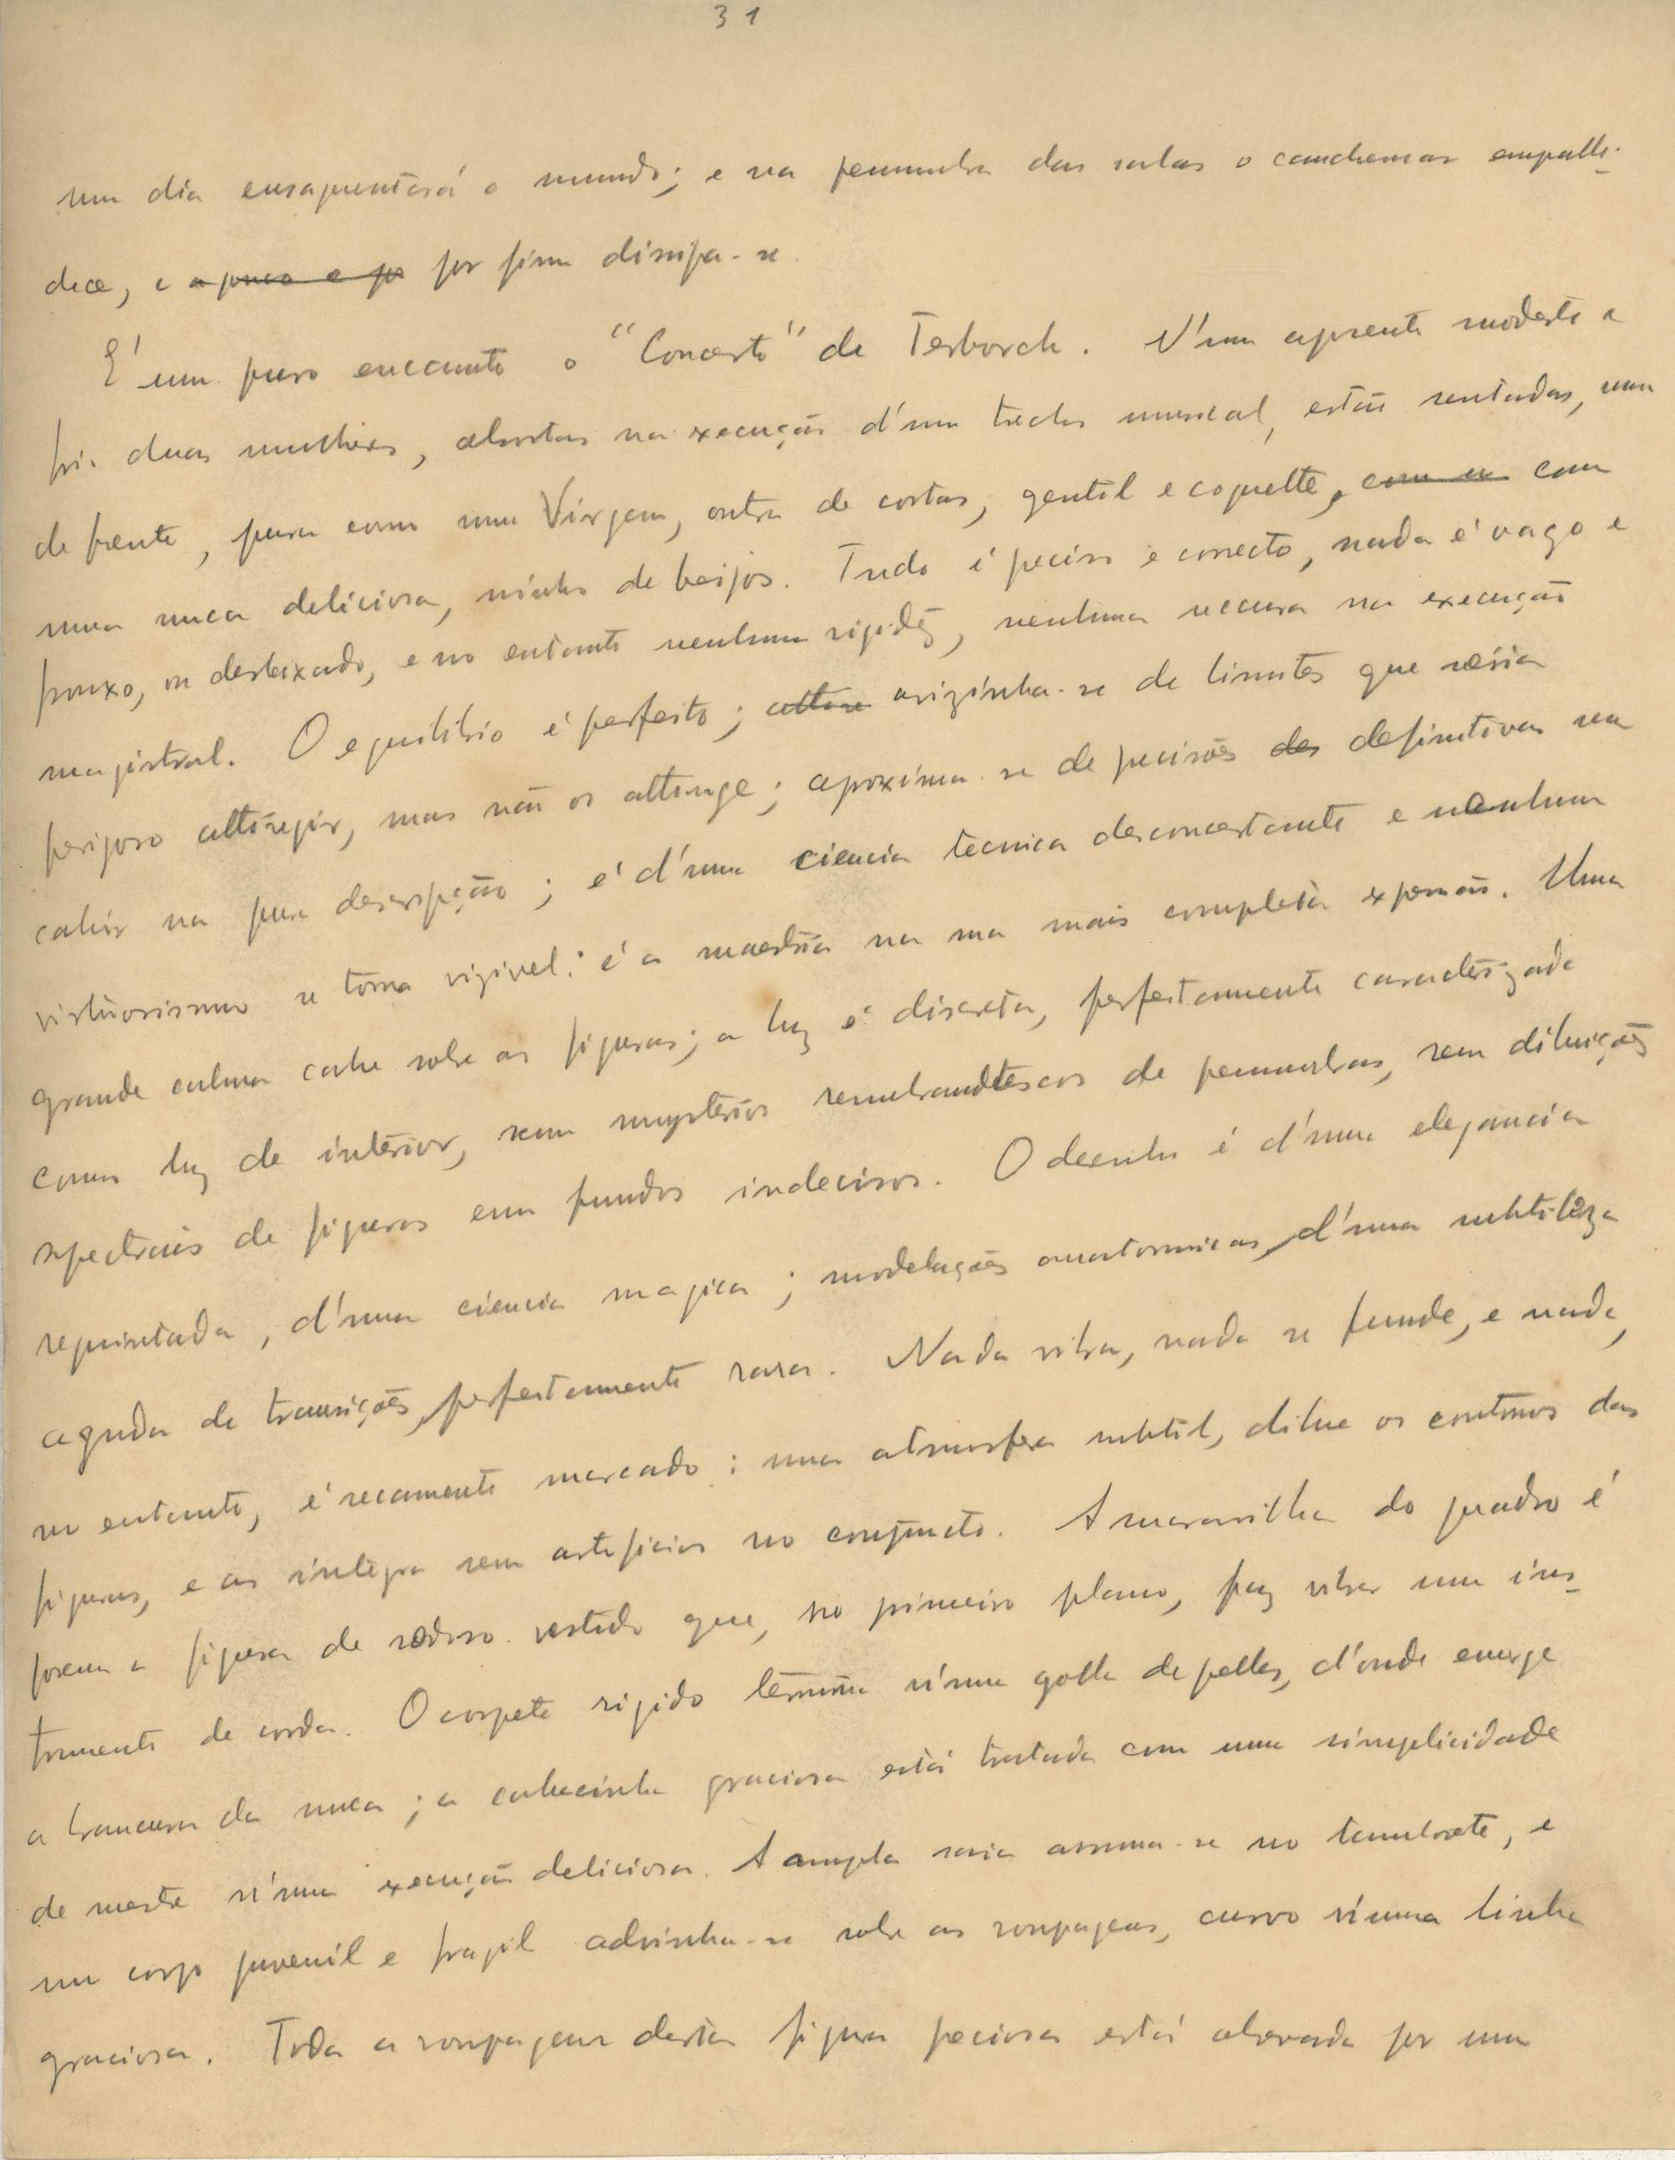 31
um dia ensaguentará o mundo; e na penumbra das salas o cauchemar empalli-
dece, e a pouco e po por fim dissipa-se.
É um puro encanto o "Concerto" de Terborch. N'um aposento modesto e
frio duas mulheres, absortas na execução d'um trecho musical, estão sentadas, uma
de frente, pura como uma Virgem, outra de costas, gentil e coquette, com u com
uma nuca deliciosa, ninho de beijos. Tudo é preciso e correcto, nada é vago e
frouxo, ou desleixado, e no entanto nenhuma rigidêz, nenhuma seccura na execução
magistral. O equilibrio é perfeito; avizinha-se de limites que seria
perigoso attingir, mas não os attinge; aproxima-se de precisões das definitivas sem
cahir na pura descripção; é d'uma ciencia tecnica desconcertante e nenhum
virtuosismo se torna vizivel: é a maestria na sua mais completa expressão. Uma
grande calma cahe sobre as figuras; a luz é discreta, perfeitamente caracterizada
como luz de interior, sem mysterios rembrandtescos de penumbras, sem diluições
espectrais de figuras em fundos indecisos. O desenho é d'uma elegancia
requintada, d'uma ciencia magica; modelações anatomicas, d'uma subtilêza
aguda de transições, perfeitamente rara. Nada vibra, nada se funde, e nada,
no entanto, é secamente marcado: uma atmosfera subtil, dilue os contornos das
figuras, e as integra sem artificios no conjuncto. A maravilha do quadro é
porem a figura de sedoso vestido que, no primeiro plano, faz vibrar um ins-
trumento de corda. O corpete rigido termina n'uma golla de pelles, d'onde emerge
a brancura da nuca; a cabecinha graciosa está tratada com uma simplicidade
de mestre n'uma execução deliciosa. A ampla saia arruma-se no tamborete, e
um corpo juvenil e fragil adivinha-se sobe as roupagens, curvo n'uma linha
graciosa. Toda a roupagem desta figura preciosa está abrasada por uma